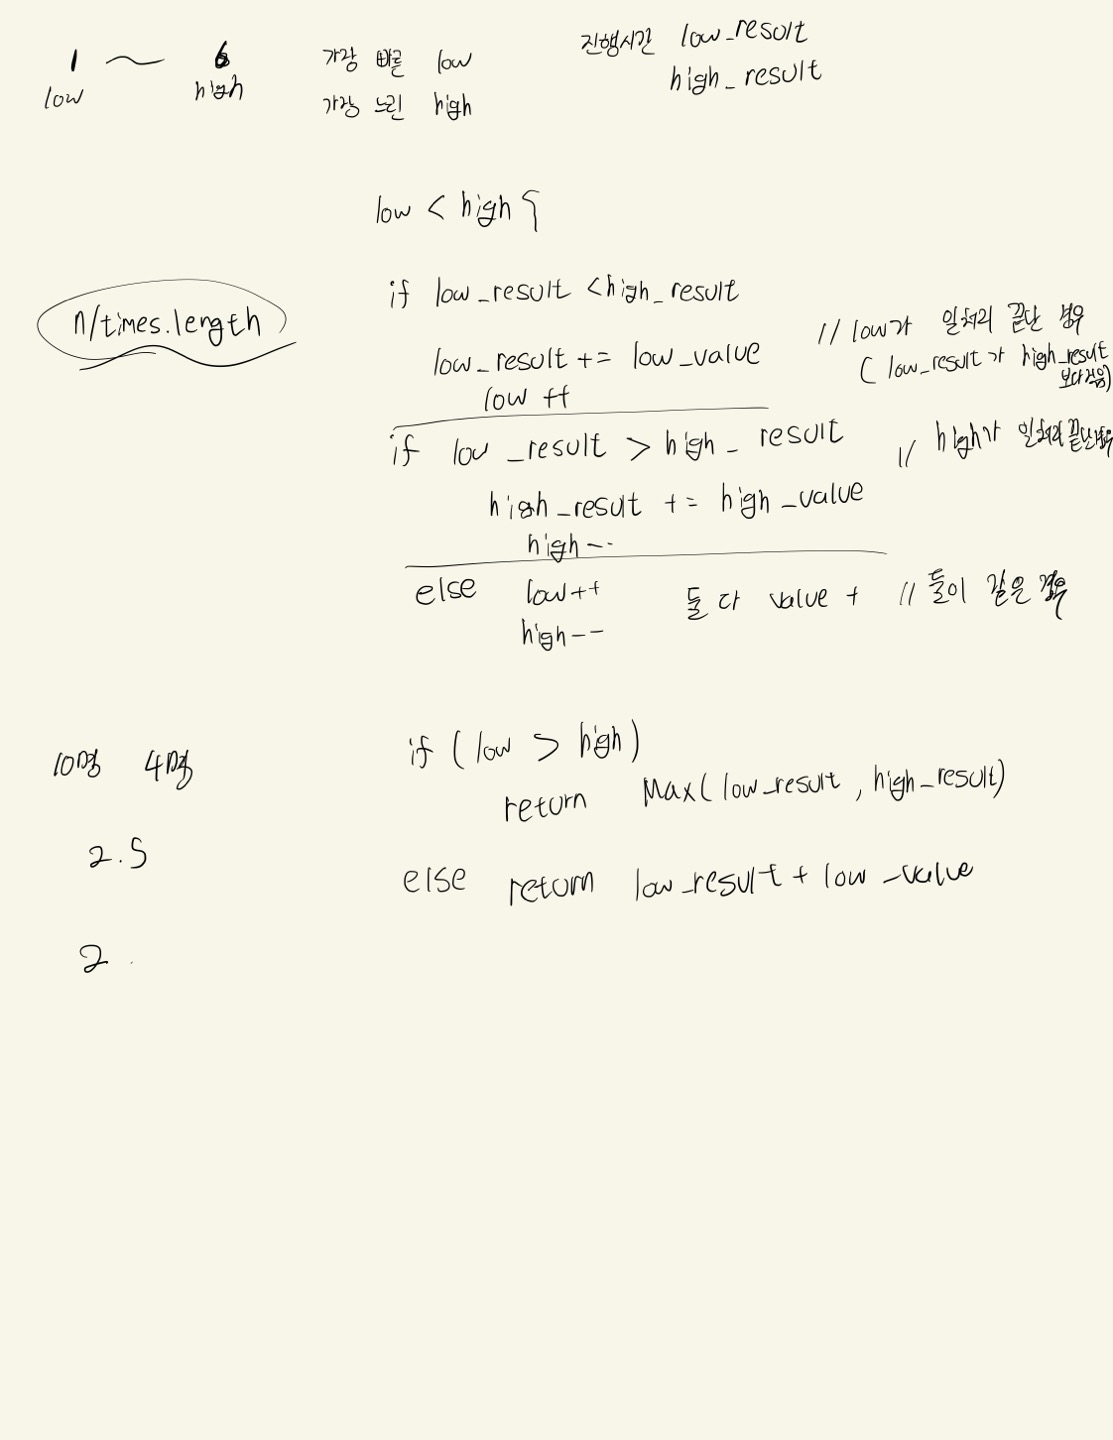 1 ~ 6
low high
가장 빠른 low
가장 느린 high
진행시간 low_result
high_result
low < high {
n/times.length
if low_result < high_result
low_result += low_value
low ++
// low가 일처리 끝난 경우
( low_result가 high_result
보다 적음)
if low_result > high_result
// high가 일처리 끝난 경우
high_result += high_value
high--
else low++ 둘 다 value + // 둘이 같은 경우
high--
10명 4명
2.5
2.
if (low > high)
return Max( low_result , high_result)
else return low_result + low_value